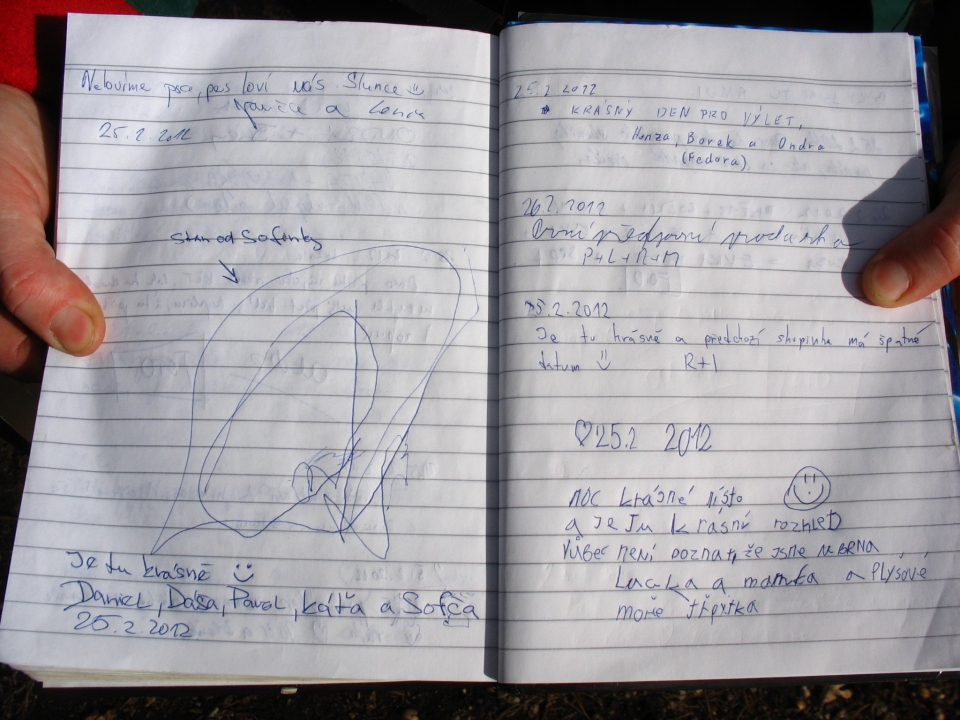 Neburíme psa, pes loví nás. Slunce
a Lenča
25.2.2012
stan od Sofinky
Je tu krásně
Daniel, Dáša, Pavol, Káťa a Sofča
25.2.2012
25.2 2012
KRÁSNÝ DEN PRO VÝLET,
Honza, Borek a Ondra
(Fedora)
26.2.2012
První předjarní procházka
P+L+R+M
25.2.2012
Je tu krásně a předchozí skupinka má špatné
datum R+I
♡25.2 2012
MOC krásné místo
a Je Tu krásný rozhleD
vůbec není poznat, že jsme u BRNA
Lucka a mamka a Plyšové
moře třpytka